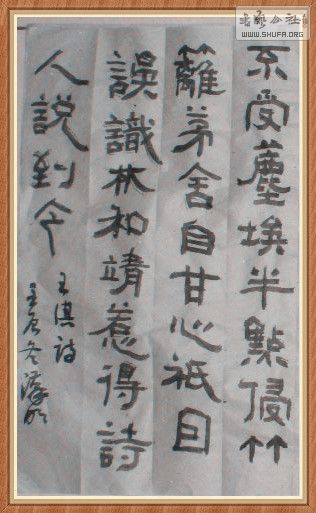 書藝公社
WWW.SHUFA.ORG
不受塵埃半點侵竹
籬茅舍自甘心祗目
誤識林和靖惹得詩
人說到今
王淇詩
壬辰冬